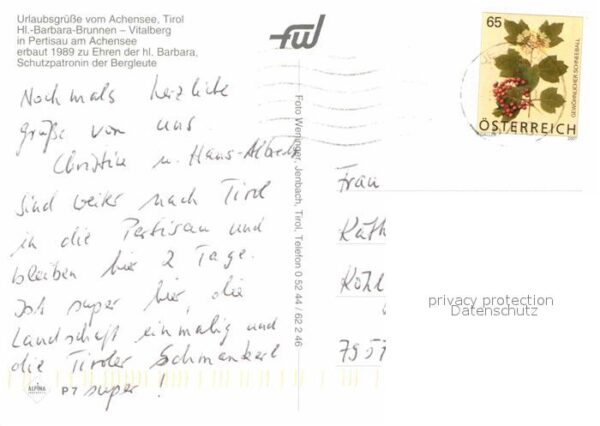 Urlaubsgrüße vom Achensee, Tirol
Hl.-Barbara-Brunnen – Vitalberg
in Pertisau am Achensee
erbaut 1989 zu Ehren der hl. Barbara,
Schutzpatronin der Bergleute
fw
65
GEWÖHNLICHER SCHNEEBALL
ÖSTERREICH
2007
Nochmals herzliche
Grüße von uns
Christin u. Hans-Albert
Sind weiter nach Tirol
in die Pertisau und
bleiben hier 2 Tage.
Ist super hier, die
Landschaft einmalig und
die Tiroler Schmankerl
super!
Foto Weninger, Jenbach, Tirol, Telefon 0 52 44 / 62 2 46
Frau
Käth
Köhl
7957
privacy protection
Datenschutz
ALPINA
P 7